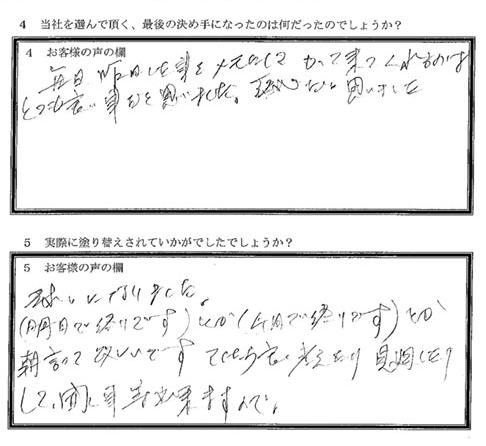 4 当社を選んで頂く、最後の決め手になったのは何だったのでしょうか？
4 お客様の声の欄
毎日 昨日した事を メモにして もって来てくれるのは
とても 事だと思いました。 だと思いました
5 実際に塗り替えされていかがでしたでしょうか？
5 お客様の声の欄
きれいになりました。
(明日で終りです)とか(今日で終りです)とか
朝言って欲しいです 考えたり 見廻したり
して、 事 出来ますんで。